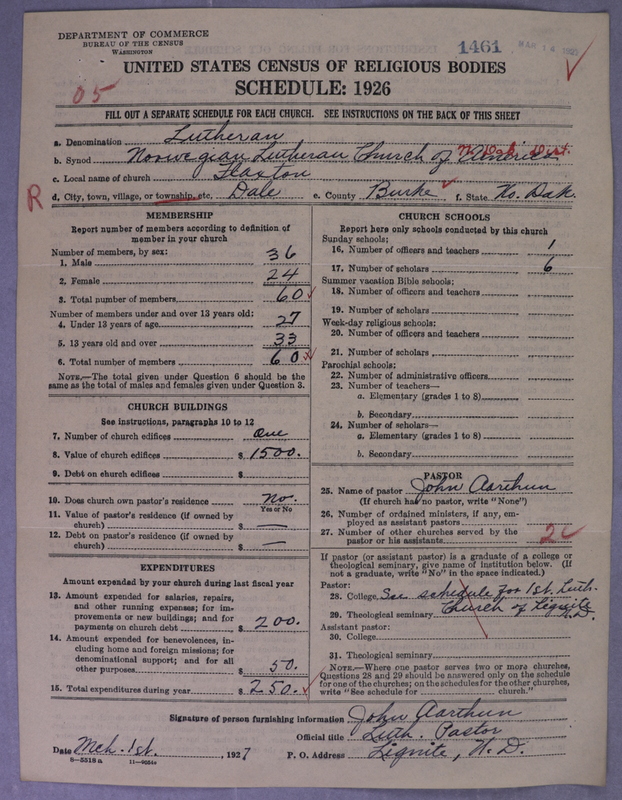 DEPARTMENT OF COMMERCE
BUREAU OF THE CENSUS
WASHINGTON
1461
UNITED STATES CENSUS OF RELIGIOUS BODIES
SCHEDULE: 1926
05
FILL OUT A SEPARATE SCHEDULE FOR EACH CHURCH. SEE INSTRUCTIONS ON THE BACK OF THIS SHEET
a. Denomination Lutheran
b. Synod Norwegian Lutheran Church of America N. Dak. Dist.
c. Local name of church Flaxton
R
d. City, town, village, or township, etc. Dale e. County Burke f. State No. Dak.
MEMBERSHIP
Report number of members according to definition of
member in your church
Number of members, by sex:
1. Male 36
2. Female 24
3. Total number of members 60
Number of members under and over 13 years old:
4. Under 13 years of age 27
5. 13 years old and over 33
6. Total number of members 60
NOTE.—The total given under Question 6 should be the
same as the total of males and females given under Question 3.
CHURCH BUILDINGS
See instructions, paragraphs 10 to 12
7. Number of church edifices One
8. Value of church edifices $ 1500.
9. Debt on church edifices $
10. Does church own pastor's residence No.
Yes or No
11. Value of pastor's residence (if owned by
church) $ —
12. Debt on pastor's residence (if owned by
church) $ —
EXPENDITURES
Amount expended by your church during last fiscal year
13. Amount expended for salaries, repairs,
and other running expenses; for im-
provements or new buildings; and for
payments on church debt $ 200.
14. Amount expended for benevolences, in-
cluding home and foreign missions; for
denominational support; and for all
other purposes $ 50.
15. Total expenditures during year $ 250.
CHURCH SCHOOLS
Report here only schools conducted by this church
Sunday schools:
16. Number of officers and teachers 1
17. Number of scholars 6
Summer vacation Bible schools:
18. Number of officers and teachers
19. Number of scholars
Week-day religious schools:
20. Number of officers and teachers
21. Number of scholars
Parochial schools:
22. Number of administrative officers
23. Number of teachers—
a. Elementary (grades 1 to 8)
b. Secondary
24. Number of scholars—
a. Elementary (grades 1 to 8)
b. Secondary
PASTOR
25. Name of pastor John Aarthun
(If church has no pastor, write "None")
26. Number of ordained ministers, if any, em-
ployed as assistant pastors
27. Number of other churches served by the
pastor or his assistants
If pastor (or assistant pastor) is a graduate of a college or
theological seminary, give name of institution below. (If
not a graduate, write "No" in the space indicated.)
Pastor:
28. College See schedule for 1st. Luth.
29. Theological seminary Church of Lignite N.D.
Assistant pastor:
30. College
31. Theological seminary
NOTE.—Where one pastor serves two or more churches,
Questions 28 and 29 should be answered only on the schedule
for one of the churches; on the schedules for the other churches,
write "See schedule for church."
Signature of person furnishing information John Aarthun
Official title Luth. Pastor
Date Mch. 1st., 1927 P. O. Address Lignite, N. D.
8—5518 a